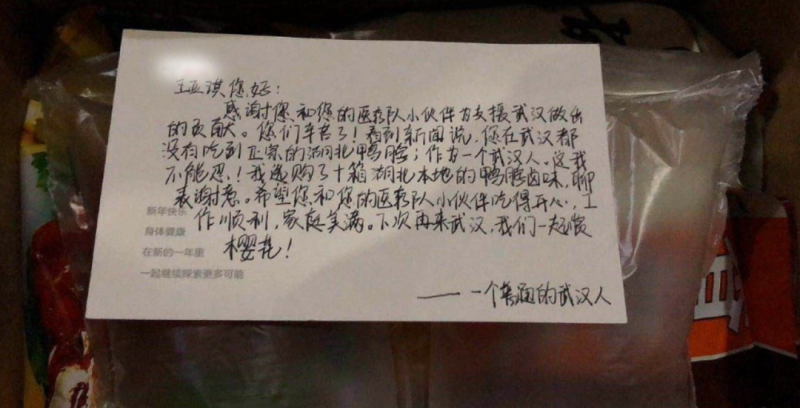 王亚琪您好：
感谢您和您的医疗队小伙伴为支援武汉做出
的贡献。您们辛苦了！看到新闻说，您在武汉都
没有吃到正宗的湖北鸭脖；作为一个武汉人，这我
不能忍！我邀购了十箱湖北本地的鸭脖卤味，聊
表谢意。希望您和您的医疗队小伙伴吃得开心，工
作顺利，家庭美满。下次再来武汉，我们一起赏
樱花！
——一个普通的武汉人
新年快乐
身体健康
在新的一年里
一起继续探索更多可能